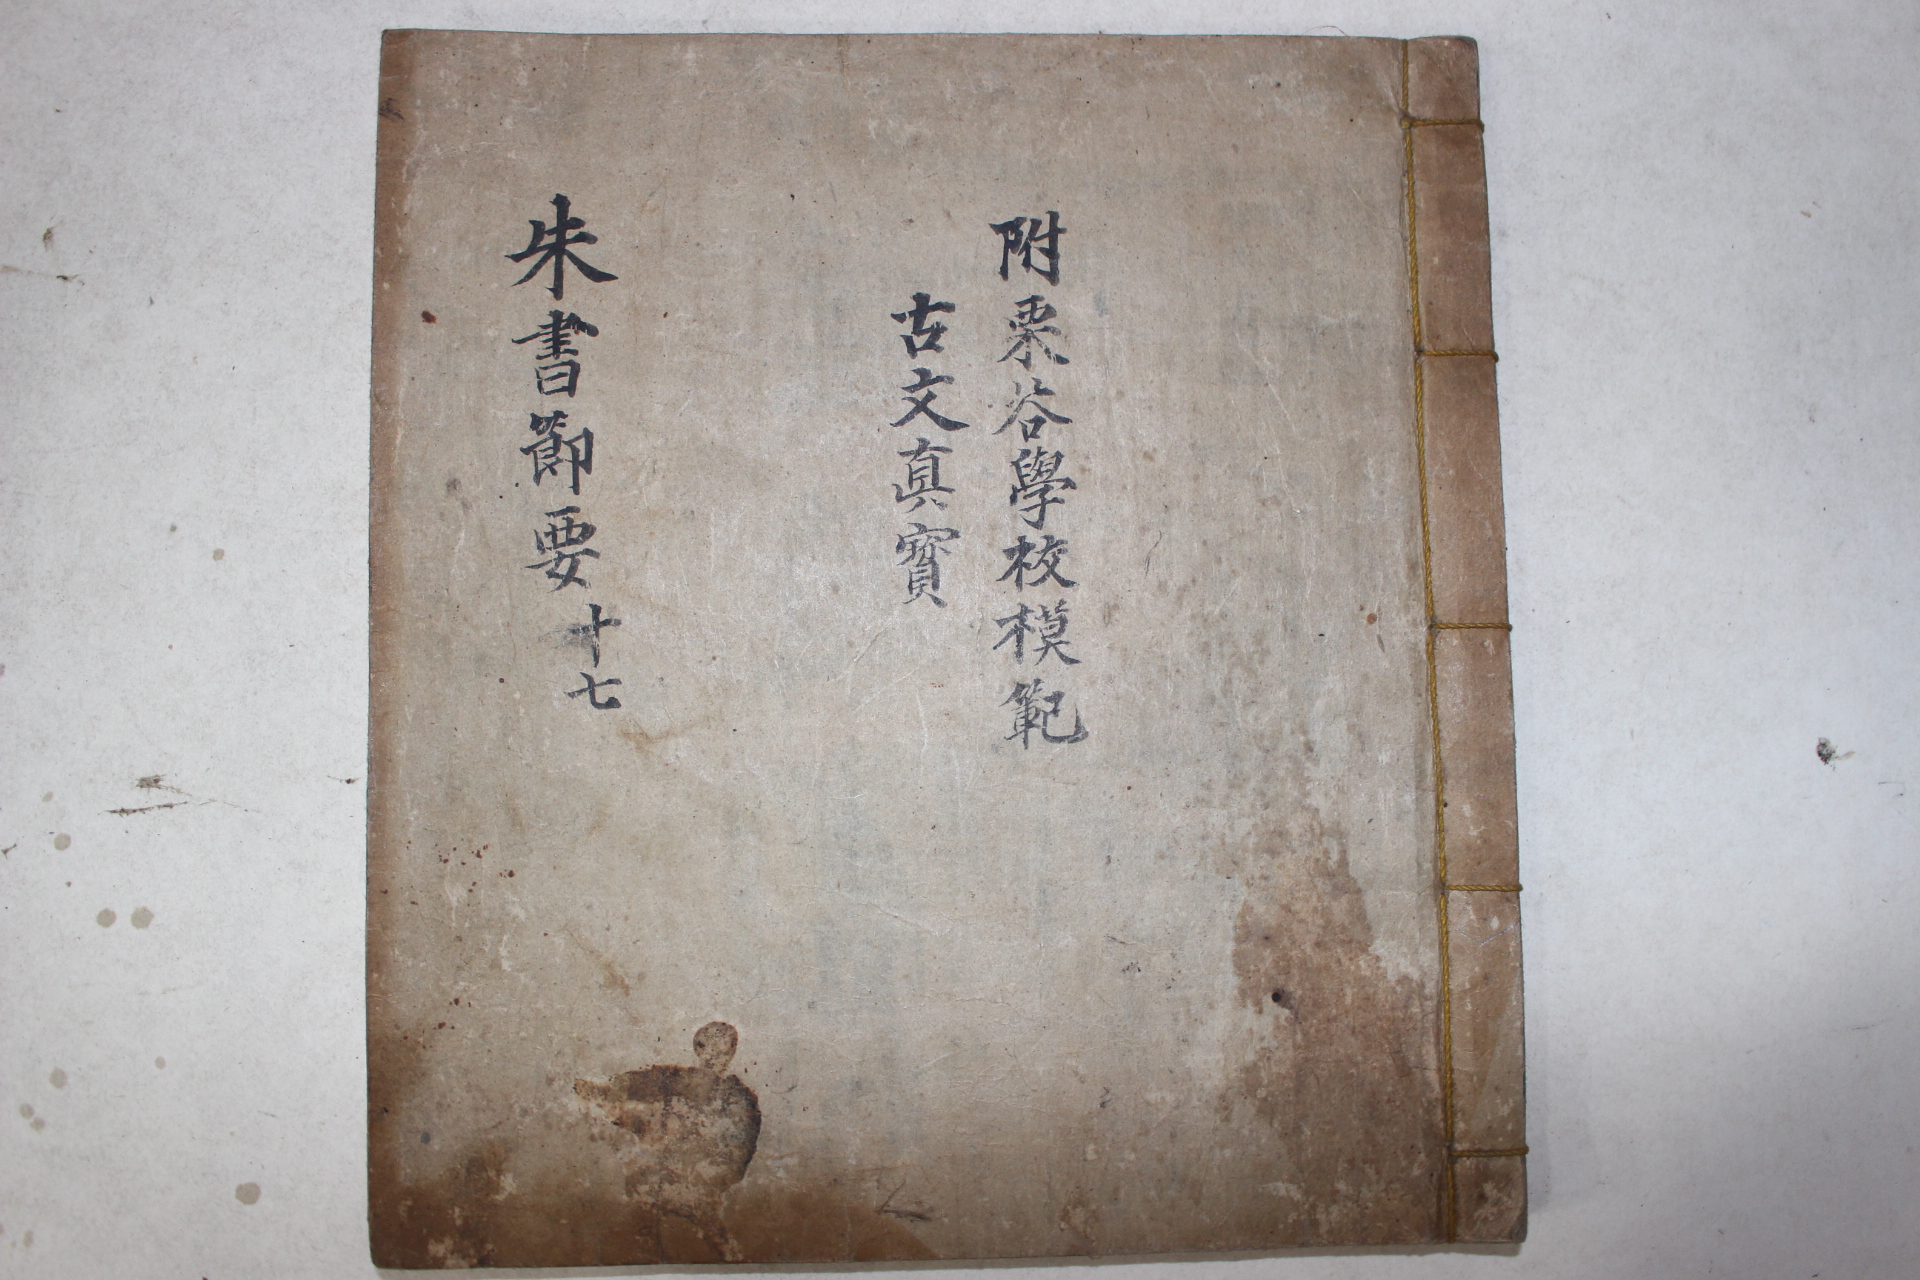 附栗谷學校模範
古文眞寳
朱書節要 十七